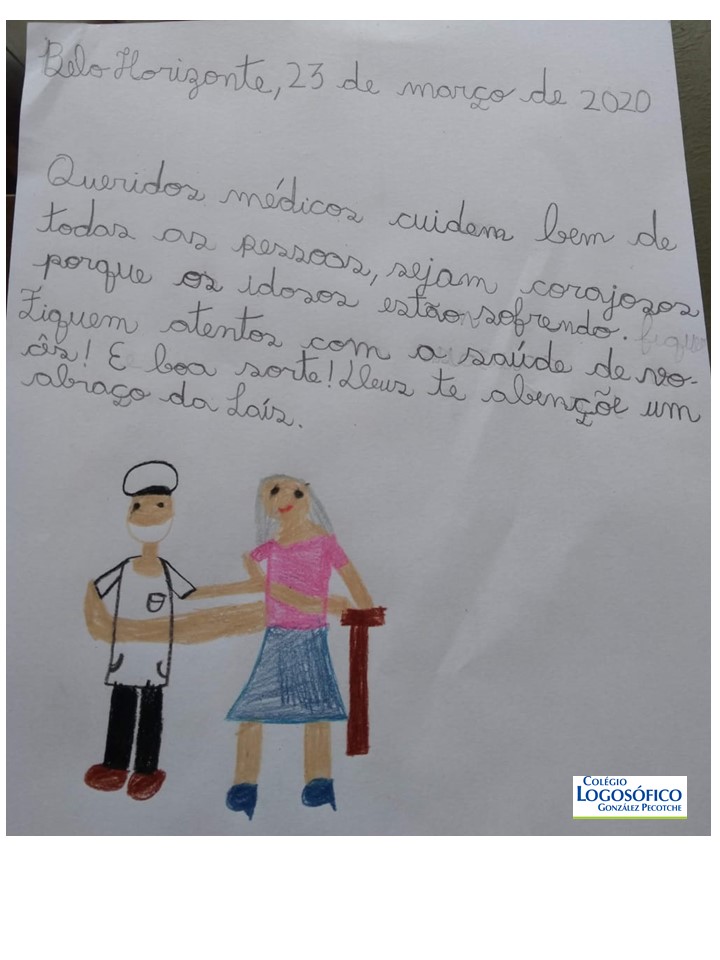 Belo Horizonte, 23 de março de 2020
Queridos médicos cuidem bem de
todas as pessoas, sejam corajosos
porque os idosos estão sofrendo. fique
Fiquem atentos com a saúde de vo-
ês! E boa sorte! Deus te abençõe um
abraço da Laís.
COLÉGIO
LOGOSÓFICO
GONZÁLEZ PECOTCHE